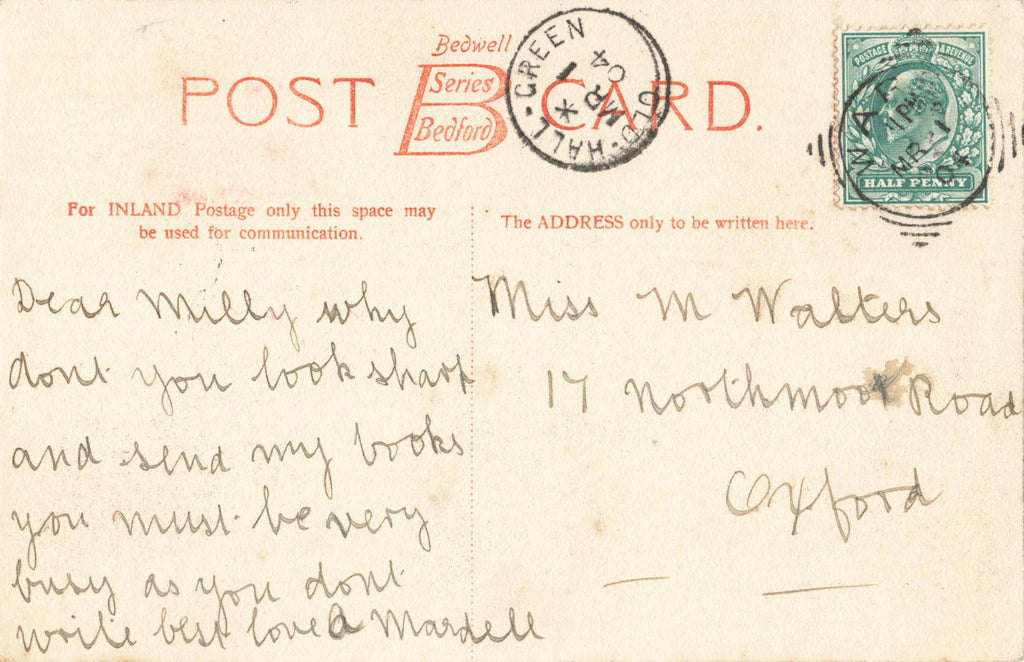 POST CARD.
Bedwell
Series
Bedford
OLD-HALL-GREEN
*
MR 1
04
POSTAGE & REVENUE
WARE
11 PM
MR 1
04
HALF PENNY
For INLAND Postage only this space may
be used for communication.
The ADDRESS only to be written here.
Dear Milly why
dont you look sharp
and send my books
you must be very
busy as you dont
write best love A Mardell
Miss M Walters
17 Northmoor Road
Oxford